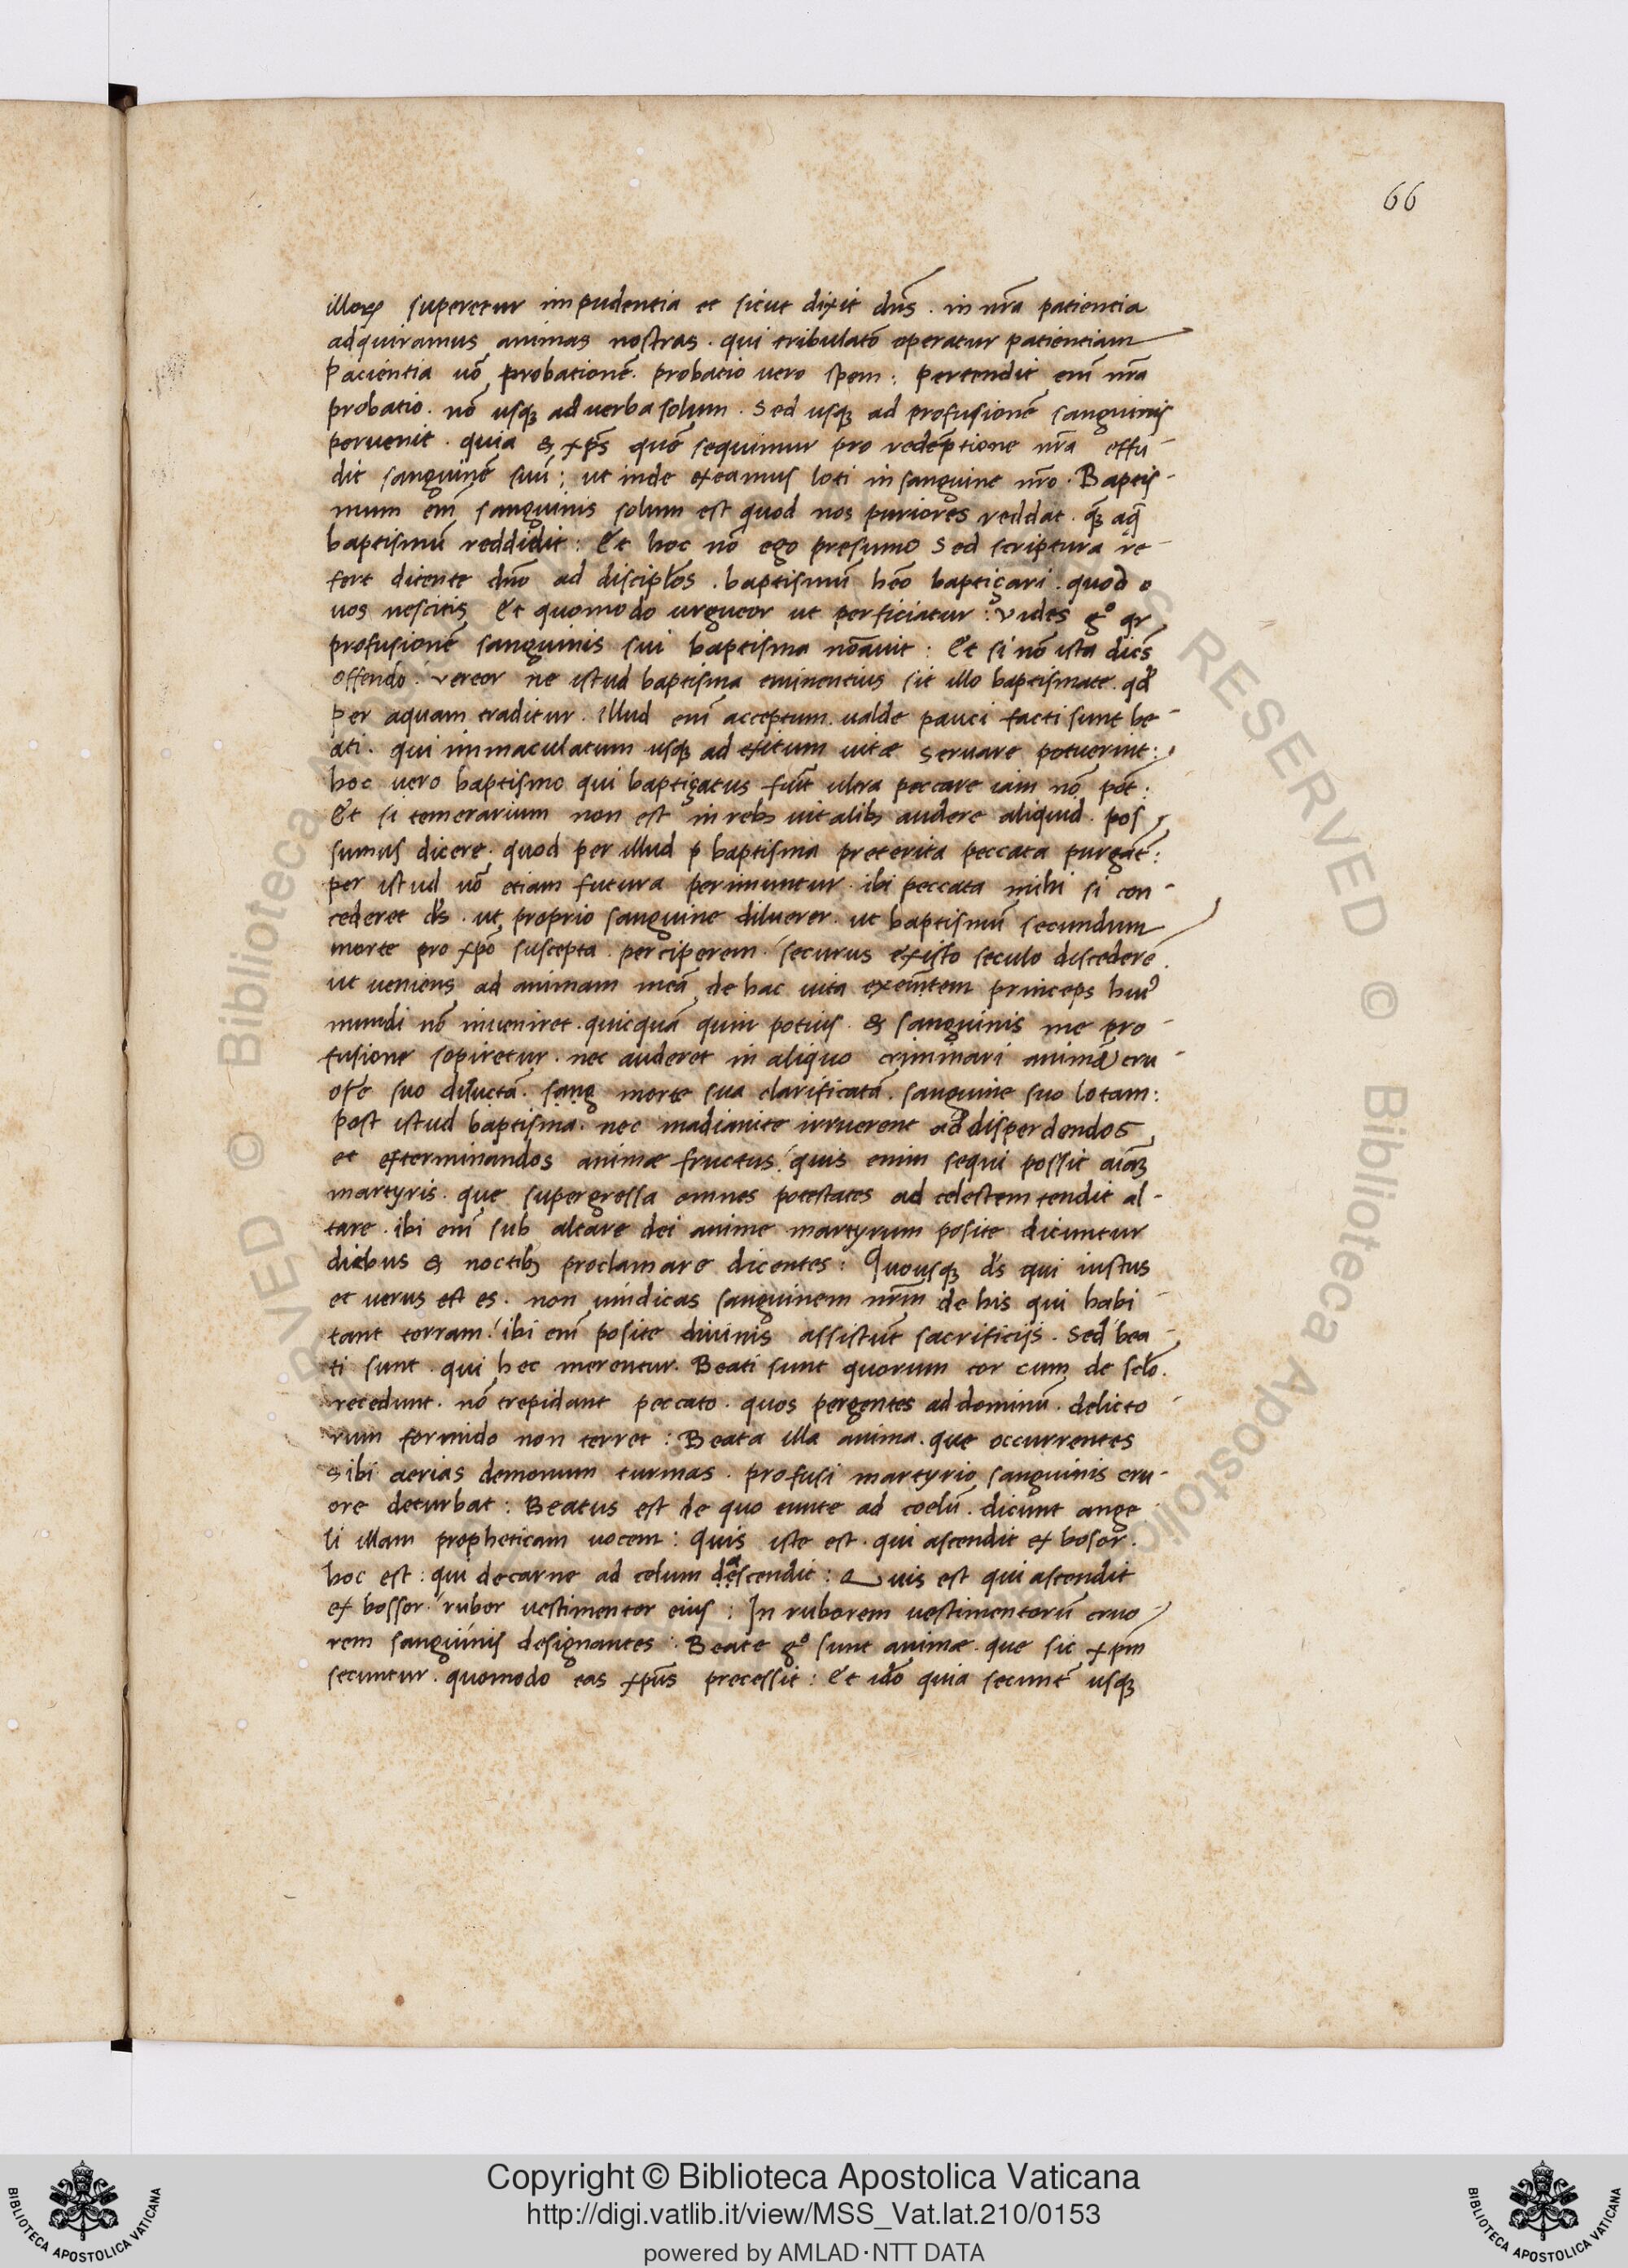 66
illoꝝ superetur impudentia et sicut dixit dn̄s . in nr̄a patientia
adquiramus animas nostras . qui tribulatō operatur patientiam
Pacientia uō probationē . probatio uero spem : Pertendit eni᷒ nr̄a
probatio . nō usqꝫ ad uerba solum . Sed usqꝫ ad profusionē sanguinis
peruenit . quia & xp̄s quē sequimur pro redēptione nr̄a effu-
dit sanguinē suū : ut inde exeamus loti in sanguine nr̄o . Baptis-
mum eni᷒ sanguinis solum est quod nos puriores reddat . qꝫ aq̄
baptismū reddidit : Et hoc nō ego presumo Sed scriptura re-
fert dicente dn̄o ad discipl̄os . baptismū hēo baptiçari . quod
uos nescitis Et quomodo urgueor ut perficiatur : Vides g° qr
profusionē sanguinis sui baptisma nōauit : Et si nō ista dicēs
offendo : vereor ne istud baptisma eminentius sit illo baptismate . qđ
per aquam traditur . Illud eni᷒ acceptum . ualde pauci facti sunt be-
ati . qui immaculatum usqꝫ ad exitum uitæ Seruare potuerint :
hoc uero baptismo qui baptiçatus fūit ultra peccare iam nō pōt :
Et si temerarium non est in rebꝫ uitalibꝫ audere aliquid . pos-
sumus dicere . quod per illud p baptisma preterita peccata purgāt :
per istud uō etiam futura perimuntur . ibi peccata mihi si con-
cederet d̄s . ut proprio sanguine diluerer . ut baptismū secundum
morte pro xp̄o suscepta . perciperem : securus ex isto seculo discederē .
ut ueniens ad animam meā de hac uita exeuntem princeps hui᷒
mundi nō inueniret . quicquā quin potius . & sanguinis me pro-
fusione sopiretur . nec auderet in aliquo criminari animā cru-
ore suo diluctā . sang morte sua clarificatā . sanguine suo lotam :
Post istud baptisma . nec madianite irruerent ad disperdendos
et exterminandos animæ fructus : quis enim sequi possit aīaꝫ
martyris . que supergressa omnes potestates ad celestem tendit al-
tare . ibi eni᷒ sub altare dei anime martyrum posite dicuntur
diebus & noctibꝫ proclamare dicentes : Quousqꝫ d̄s qui iustus
et uerus est es . non uindicas sanguinem nr̄m de his qui habi-
tant terram : ibi eni᷒ posite diuinis assistūt sacrificijs . Sed bea-
ti sunt . qui hec merentur . Beati sunt quorum cor cum de sclō .
recedunt . nō trepidant peccato . quos pergentes ad dominū . delicto-
rum formido non terret : Beata illa anima . que occurrentes
sibi aerias demonum turmas . profusi martyrio sanguinis cru-
ore deturbat : Beatus est de quo eunte ad coelū . dicunt ange
li illam propheticam uocem : Quis iste est . qui ascendit ex bosor .
hoc est : qui de carne ad celum dascendit : Quis est qui ascendit
ex bossor . rubor uestimentor eius : In ruborem uestimentorū cruo
rem sanguinis designantes : Beate g° sunt animæ . que sic xp̄m
secuntur . quomodo eas xp̄us precessit : Et iđo quia secunt᷒ usqꝫ
© Biblioteca Apostolica
RESERVED © Biblioteca Apostolica
Copyright © Biblioteca Apostolica Vaticana
http://digi.vatlib.it/view/MSS_Vat.lat.210/0153
powered by AMLAD·NTT DATA
BIBLIOTECA APOSTOLICA VATICANA
BIBLIOTECA APOSTOLICA VATICANA